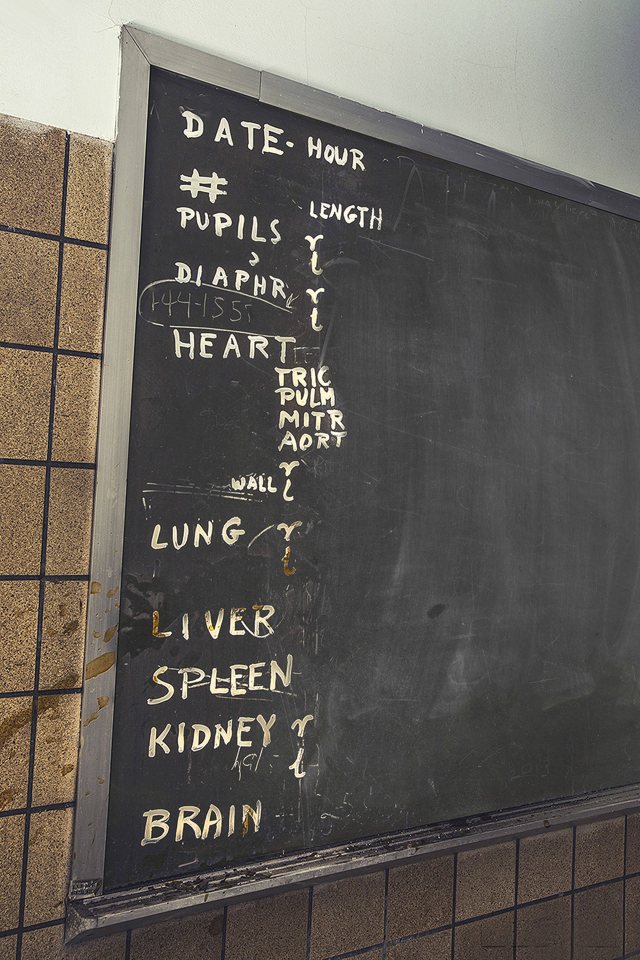 DATE - HOUR
#
LENGTH
PUPILS r
l
DIAPHR r
l
HEART
TRIC
PULM
MITR
AORT
WALL r
l
LUNG r
l
LIVER
SPLEEN
KIDNEY r
l
BRAIN